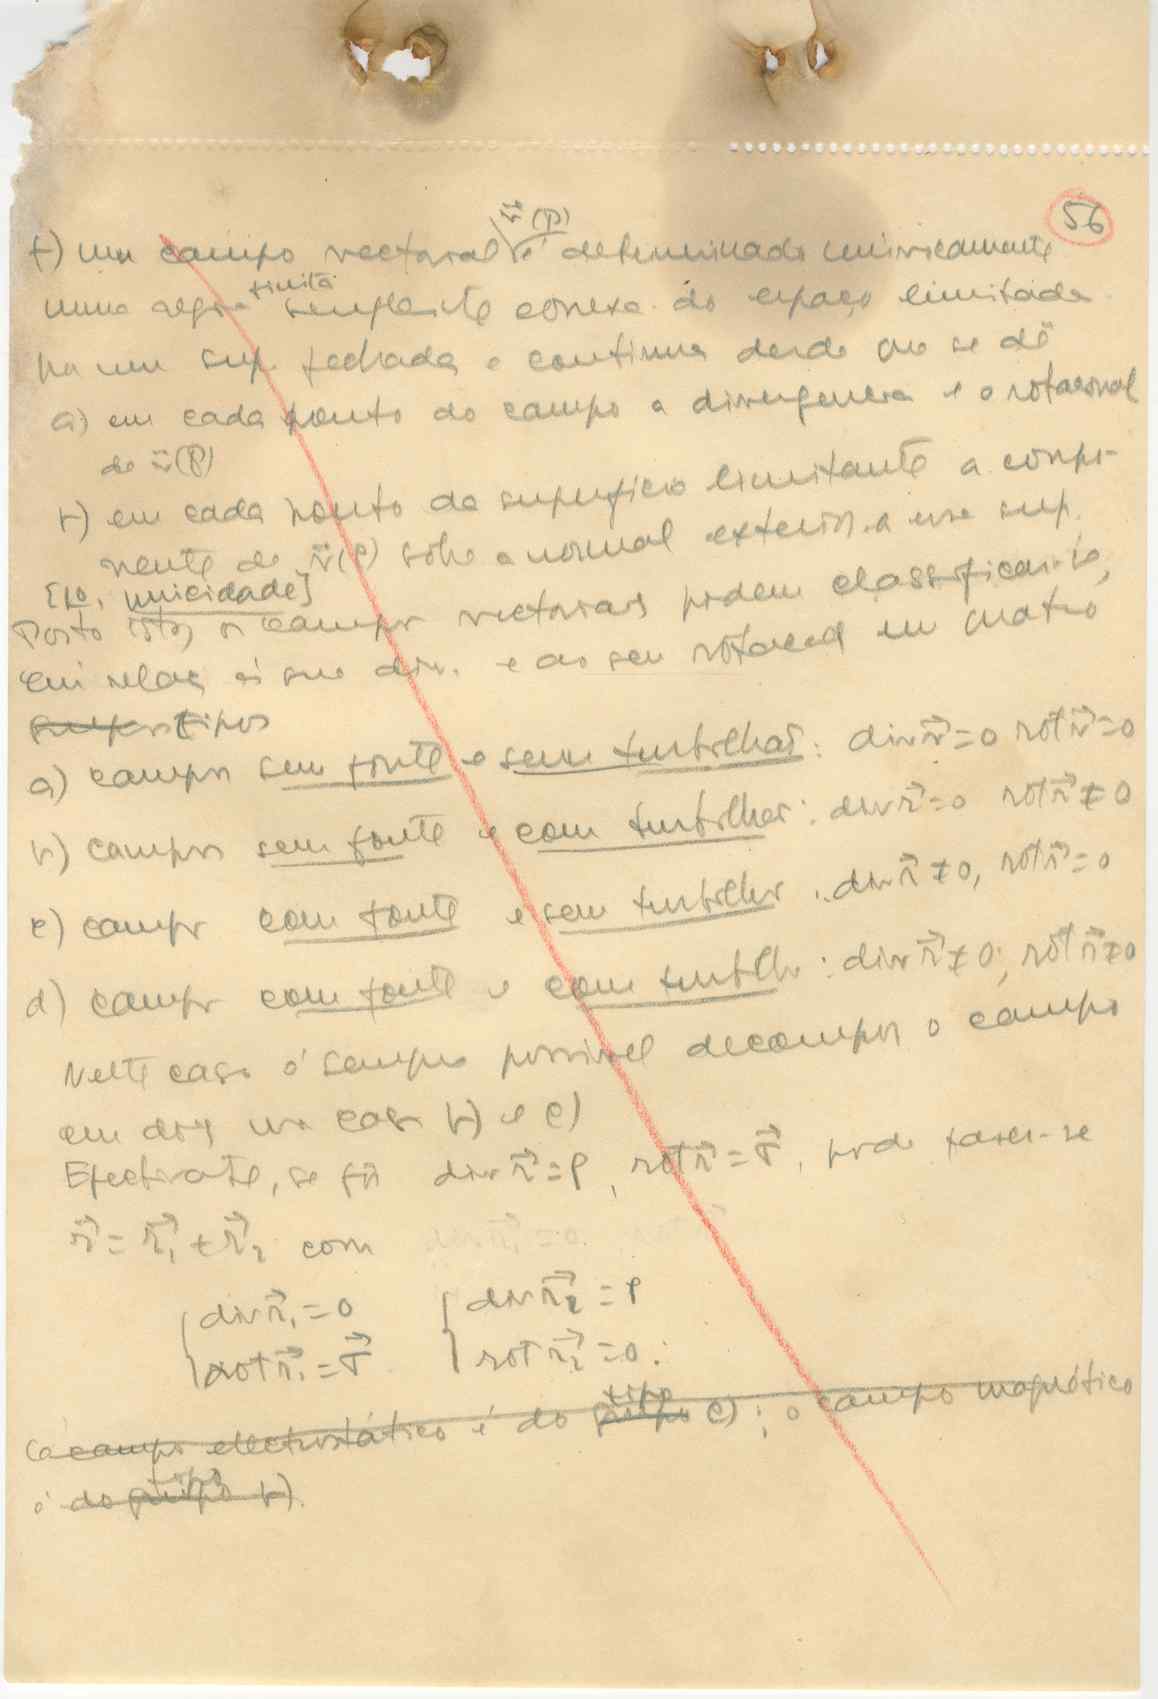 56
f) um campo vectorial v⃗(P) é determinado univocamente
numa região finita simplesmte conexa do espaço limitada
por um sup. fechada e continua desde que se dê
a) em cada ponto do campo a divergencia e o rotacional
de v⃗(P)
b) em cada ponto da superficie limitante a compo-
nente de v⃗(P) sobre a normal exterior a essa sup.
[ unicidade]
Posto isto, os campos vectoriais podem classificar-se,
em relaç à sua div. e ao seu rotacal em quatro
tipos
a) campos sem fonte e sem turbilhão: div v⃗=0 rot v⃗=0
b) campos sem fonte e com turbilhão: div v⃗=0 rot v⃗≠0
c) campos com fonte e sem turbilhão: div v⃗≠0, rot v⃗=0
d) campos com fonte e com turbilh: div v⃗≠0, rot v⃗≠0
Neste caso é sempre possivel decompor o campo
em dois nos casos b) e c)
Efectivate, se fôr div v⃗=ρ, rot v⃗=σ⃗, pode fazer-se
v⃗=v⃗₁+v⃗₂ com
{div v⃗₁=0 {div v⃗₂=ρ
{rot v⃗₁=σ⃗ {rot v⃗₂=0.
campo electrostático é do grupo tipo c); o campo magnético
é do grupo tipo b).